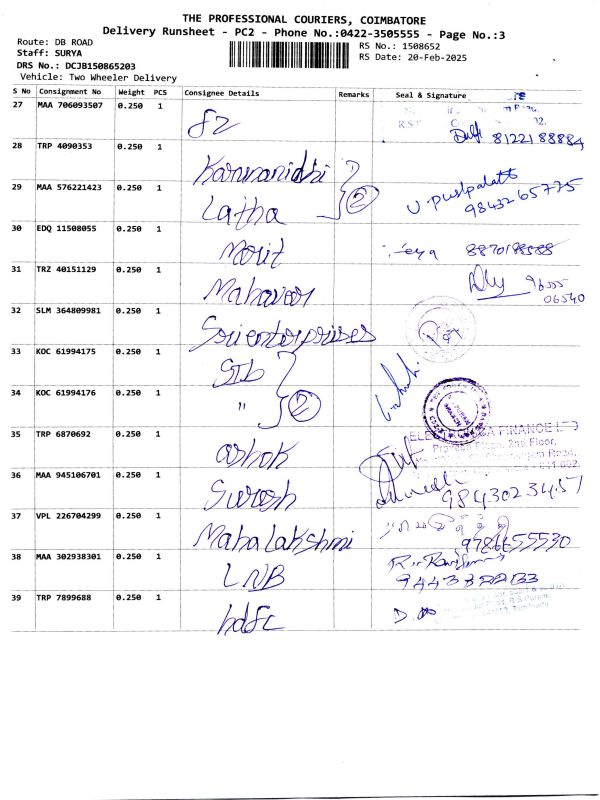 THE PROFESSIONAL COURIERS, COIMBATORE
Delivery Runsheet - PC2 - Phone No.:0422-3505555 - Page No.:3
Route: DB ROAD
RS No.: 1508652
Staff: SURYA
RS Date: 20-Feb-2025
DRS No.: DCJB150865203
Vehicle: Two Wheeler Delivery
S No Consignment No Weight PCS Consignee Details Remarks Seal & Signature
27 MAA 706093507 0.250 1 8122188884
28 TRP 4090353 0.250 1 Karunanidhi
29 MAA 576221423 0.250 1 Latha 2 U. Pushpalatha 9843265775
30 EDQ 11508055 0.250 1 Morit
31 TRZ 40151129 0.250 1 Mahaveer 96555 06540
32 SLM 364809981 0.250 1 Sri enterprises
33 KOC 61994175 0.250 1 STL
34 KOC 61994176 0.250 1 " 2
35 TRP 6870692 0.250 1 ashok
36 MAA 945106701 0.250 1 Suresh 9843023457
37 VPL 226704299 0.250 1 Mahalakshmi 9786655530
38 MAA 302938301 0.250 1 LNB
39 TRP 7899688 0.250 1 hdfc